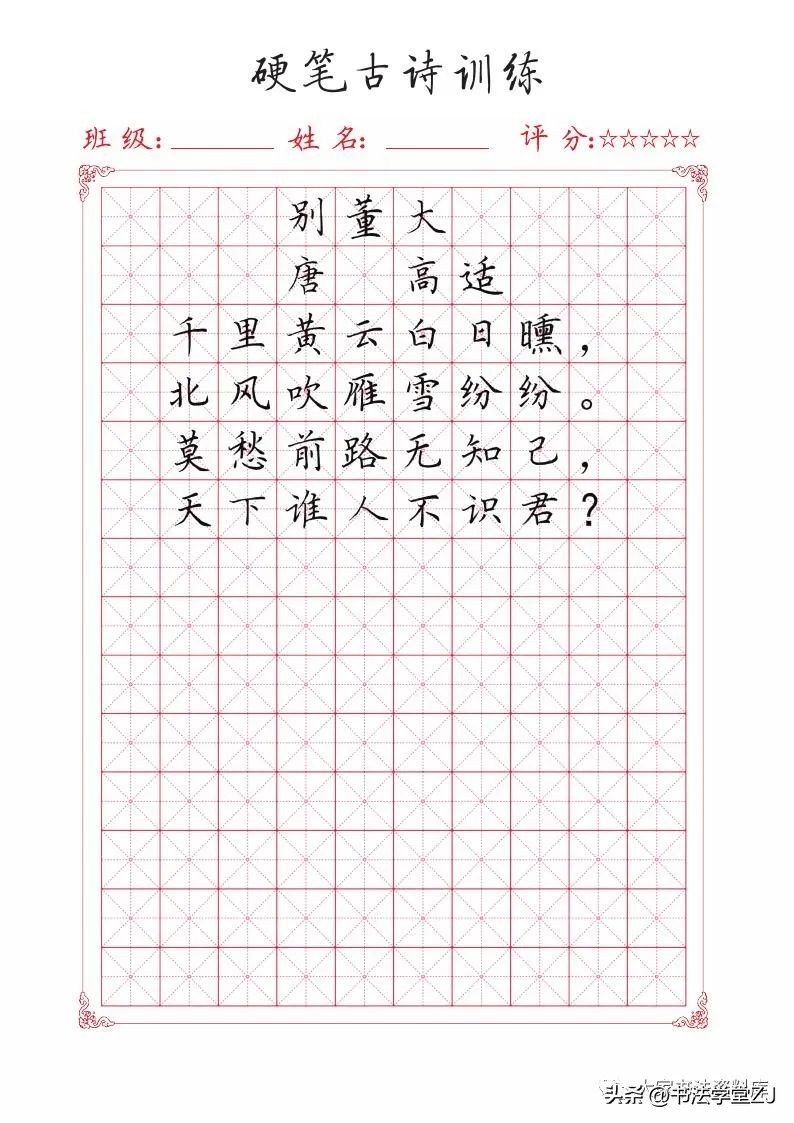 硬笔古诗训练
班级: 姓名: 评分:☆☆☆☆☆
别董大
唐 高适
千里黄云白日曛，
北风吹雁雪纷纷。
莫愁前路无知己，
天下谁人不识君？
头条@书法学堂ZJ